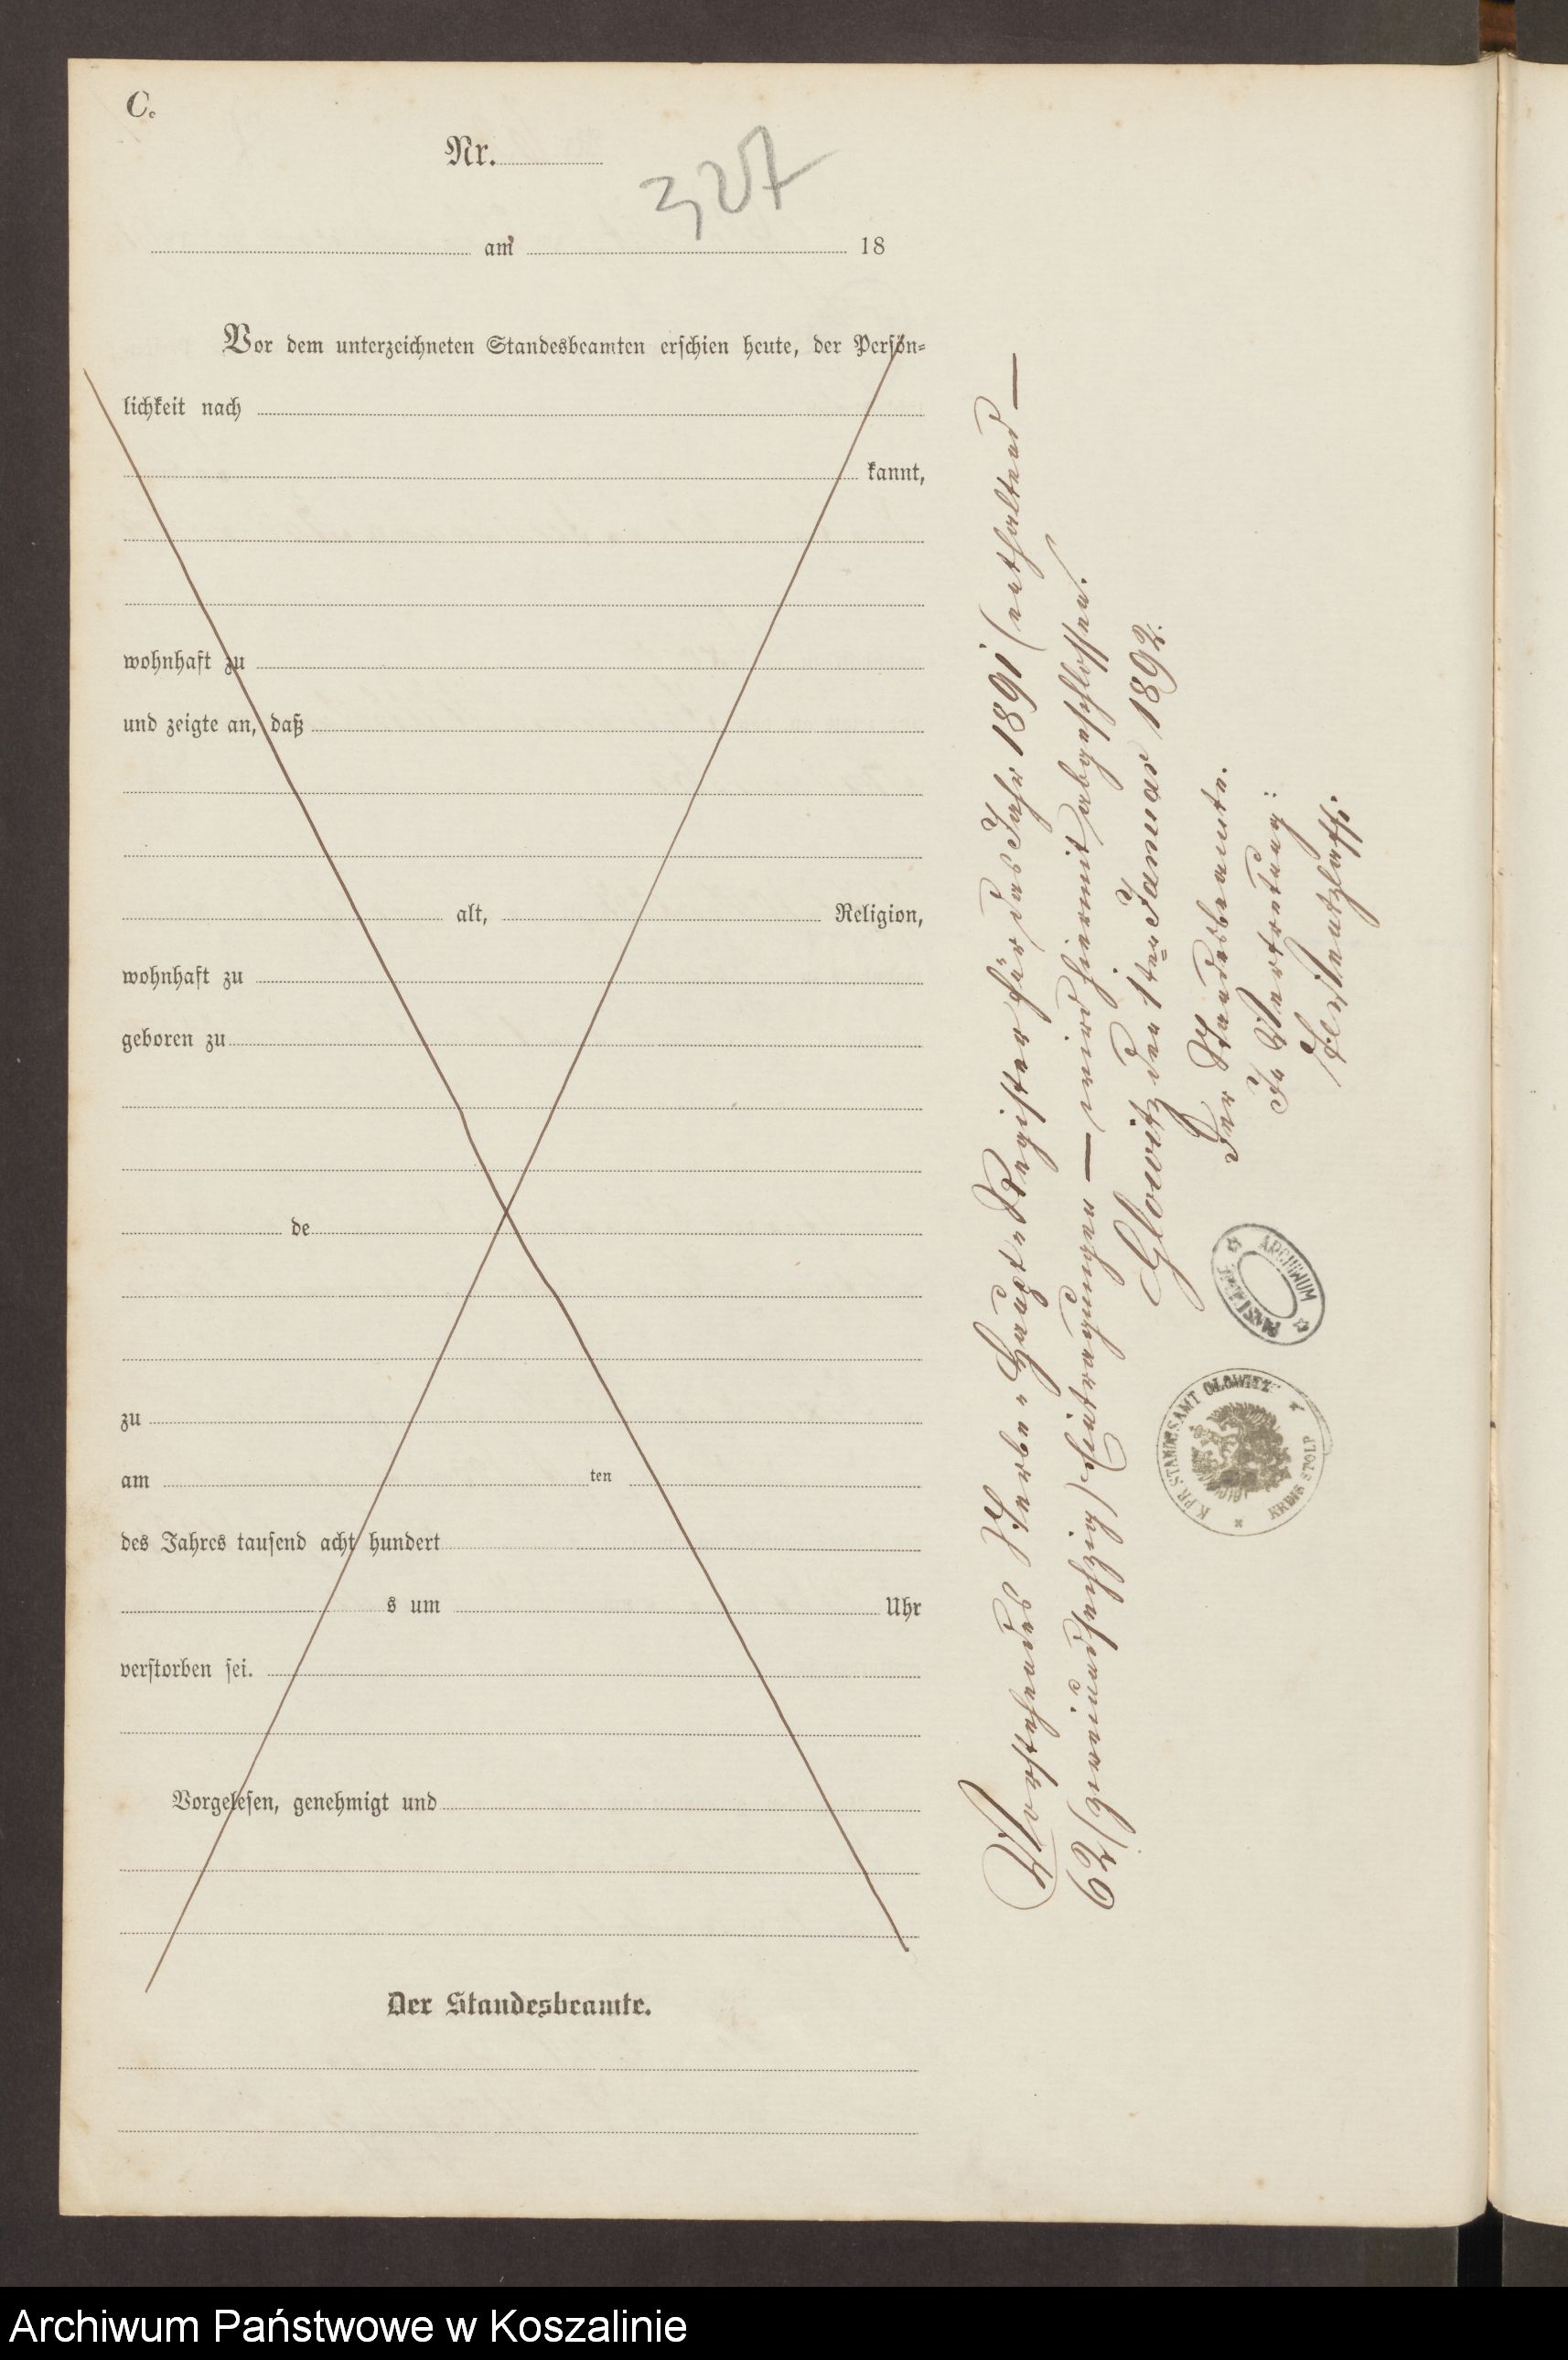 C.
Nr.
327
am 18
Vor dem unterzeichneten Standesbeamten erschien heute, der Persön=
lichkeit nach
kannt,
wohnhaft zu
und zeigte an, daß
alt, Religion,
wohnhaft zu
geboren zu
de
zu
am ten
des Jahres tausend acht hundert
s um Uhr
verstorben sei.
Vorgelesen, genehmigt und
Der Standesbeamte.
Vorstehendes Sterbe-Haupt-Register für das Jahr 1891 (enthaltend —
62 (zweiundsechzig) Eintragungen — wird hiermit abgeschlossen.
Glowitz den 1ten Januar 1892.
Der Standesbeamte.
In Vertretung:
ARCHIWUM PAŃSTWOWE
K. PR. STANDESAMT GLOWITZ
KREIS STOLP
Archiwum Państwowe w Koszalinie